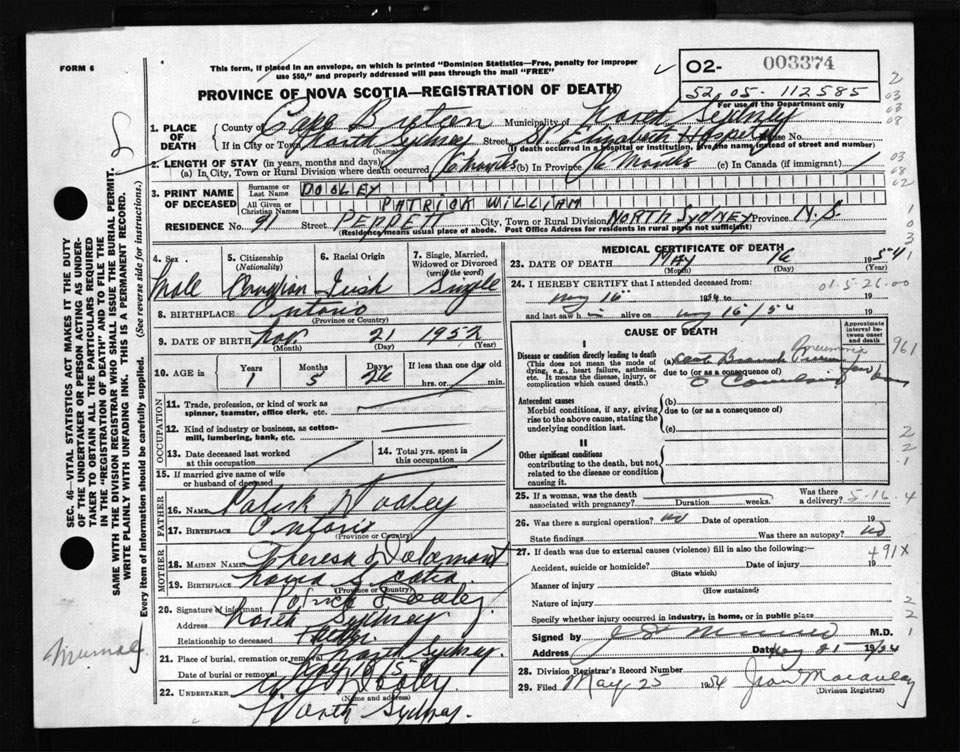 FORM 6
This form, if placed in an envelope, on which is printed "Dominion Statistics—Free, penalty for improper
use $50," and properly addressed will pass through the mail "FREE"
O2- 003374
52 05- 112585
For use of the Department only
PROVINCE OF NOVA SCOTIA—REGISTRATION OF DEATH
1. PLACE OF DEATH
County of Cape Breton Municipality of North Sydney
If in City or Town North Sydney St. Elizabeth Hospital House No.
(Name) (If death occurred in a hospital or institution, give the name instead of street and number)
2. LENGTH OF STAY (in years, months and days)
(a) In City, Town or Rural Division where death occurred 6 months (b) In Province 6 Months (c) In Canada (if immigrant)
3. PRINT NAME OF DECEASED
Surname or Last Name DOOLEY
All Given or Christian Names PATRICK WILLIAM
RESIDENCE No. 91 PEPPETT City, Town or Rural Division NORTH SYDNEY Province N.S.
(Residence means usual place of abode. Post Office Address for residents in rural parts not sufficient)
4. Sex
Male
5. Citizenship (Nationality)
Canadian
6. Racial Origin
Irish
7. Single, Married, Widowed or Divorced (write the word)
Single
8. BIRTHPLACE Ontario
(Province or Country)
9. DATE OF BIRTH Nov. 21 1952
(Month) (Day) (Year)
10. AGE in
Years 1 Months 5 Days 26 If less than one day old
hrs. or min.
OCCUPATION
11. Trade, profession, or kind of work as
spinner, teamster, office clerk, etc.
12. Kind of industry or business, as cotton-
mill, lumbering, bank, etc.
13. Date deceased last worked
at this occupation
14. Total yrs. spent in
this occupation
15. If married give name of wife
or husband of deceased
FATHER
16. NAME Patrick Dooley
17. BIRTHPLACE Ontario
(Province or Country)
MOTHER
18. MAIDEN NAME Theresa
19. BIRTHPLACE Nova Scotia
(Province or Country)
20. Signature of informant Patrick Dooley
Address North Sydney
Relationship to deceased Father
21. Place of burial, cremation or removal North Sydney
Date of burial or removal
22. UNDERTAKER
(Name and address)
North Sydney.
MEDICAL CERTIFICATE OF DEATH
23. DATE OF DEATH MAY 16 1954
(Month) (Day) (Year)
24. I HEREBY CERTIFY that I attended deceased from:
May 16 1954 to 19
and last saw h alive on May 16/54 19
01.5.26.00
CAUSE OF DEATH
Approximate interval between onset and death
I
Disease or condition directly leading to death (a)
(This does not mean the mode of
dying, e.g., heart failure, asthenia,
etc. It means the disease, injury, or
complication which caused death.)
due to (or as a consequence of)
Pneumonia
961
Antecedent causes
Morbid conditions, if any, giving
rise to the above cause, stating the
underlying condition last.
(b)
due to (or as a consequence of)
(c)
II
Other significant conditions
contributing to the death, but not
related to the disease or condition
causing it.
25. If a woman, was the death
associated with pregnancy? Duration weeks. Was there a delivery?
5-16.4
26. Was there a surgical operation? no Date of operation 19
State findings Was there an autopsy? no
27. If death was due to external causes (violence) fill in also the following:—
+91X
Accident, suicide or homicide? Date of injury 19
(State which)
Manner of injury
(How sustained)
Nature of injury
Specify whether injury occurred in industry, in home, or in public place
Signed by M.D.
Address Date May 21 1954
28. Division Registrar's Record Number
29. Filed May 25 1954 Jean Macaulay
(Division Registrar)
SEC. 46—VITAL STATISTICS ACT MAKES IT THE DUTY
OF THE UNDERTAKER OR PERSON ACTING AS UNDER-
TAKER TO OBTAIN ALL THE PARTICULARS REQUIRED
IN THE "REGISTRATION OF DEATH" AND TO FILE THE
SAME WITH THE DIVISION REGISTRAR WHO SHALL ISSUE THE BURIAL PERMIT.
WRITE PLAINLY WITH UNFADING INK. THIS IS A PERMANENT RECORD.
Every item of information should be carefully supplied. (See reverse side for instructions.)